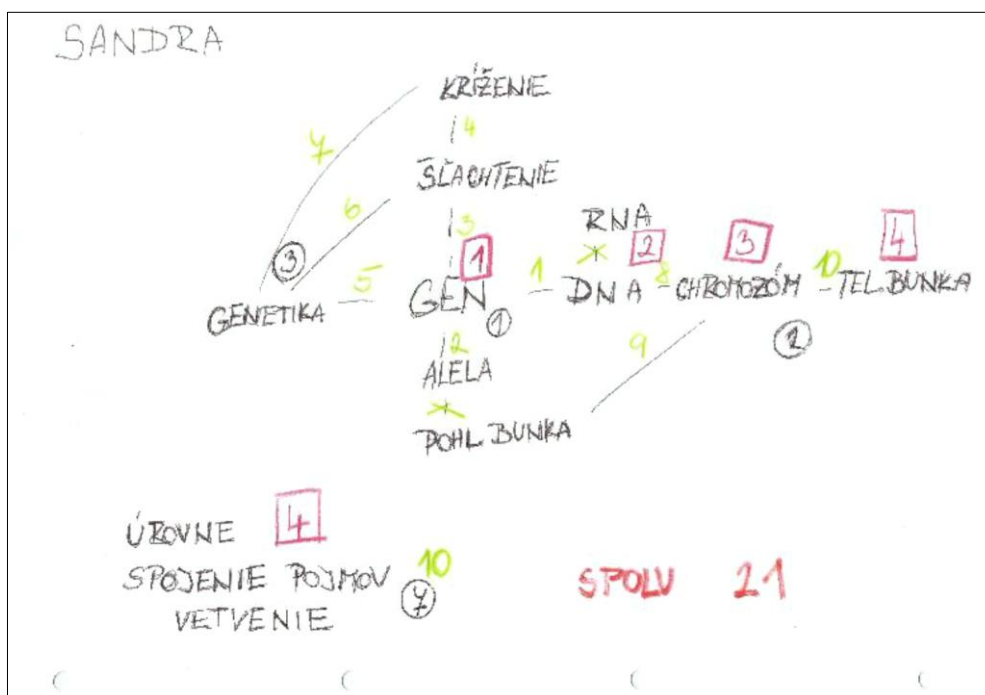 SANDRA
KRÍŽENIE
7
4
ŠĽACHTENIE
6
3
RNA
3 1 2 3 4
GENETIKA 5 GÉN 1 DNA 8 CHROMOZÓM 10 TEL. BUNKA
1
2 9
ALELA
POHL. BUNKA
ÚROVNE 4
SPOJENIE POJMOV 10
VETVENIE 7
SPOLU 21